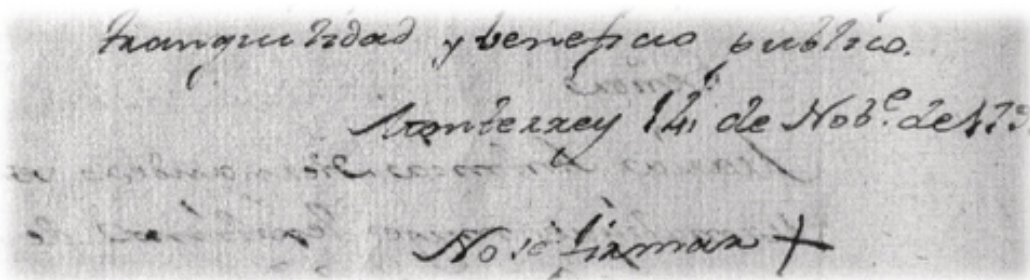 tranquilidad y beneficio publico.
Monterrey 14 de Nob.e de 179
No se firmar +